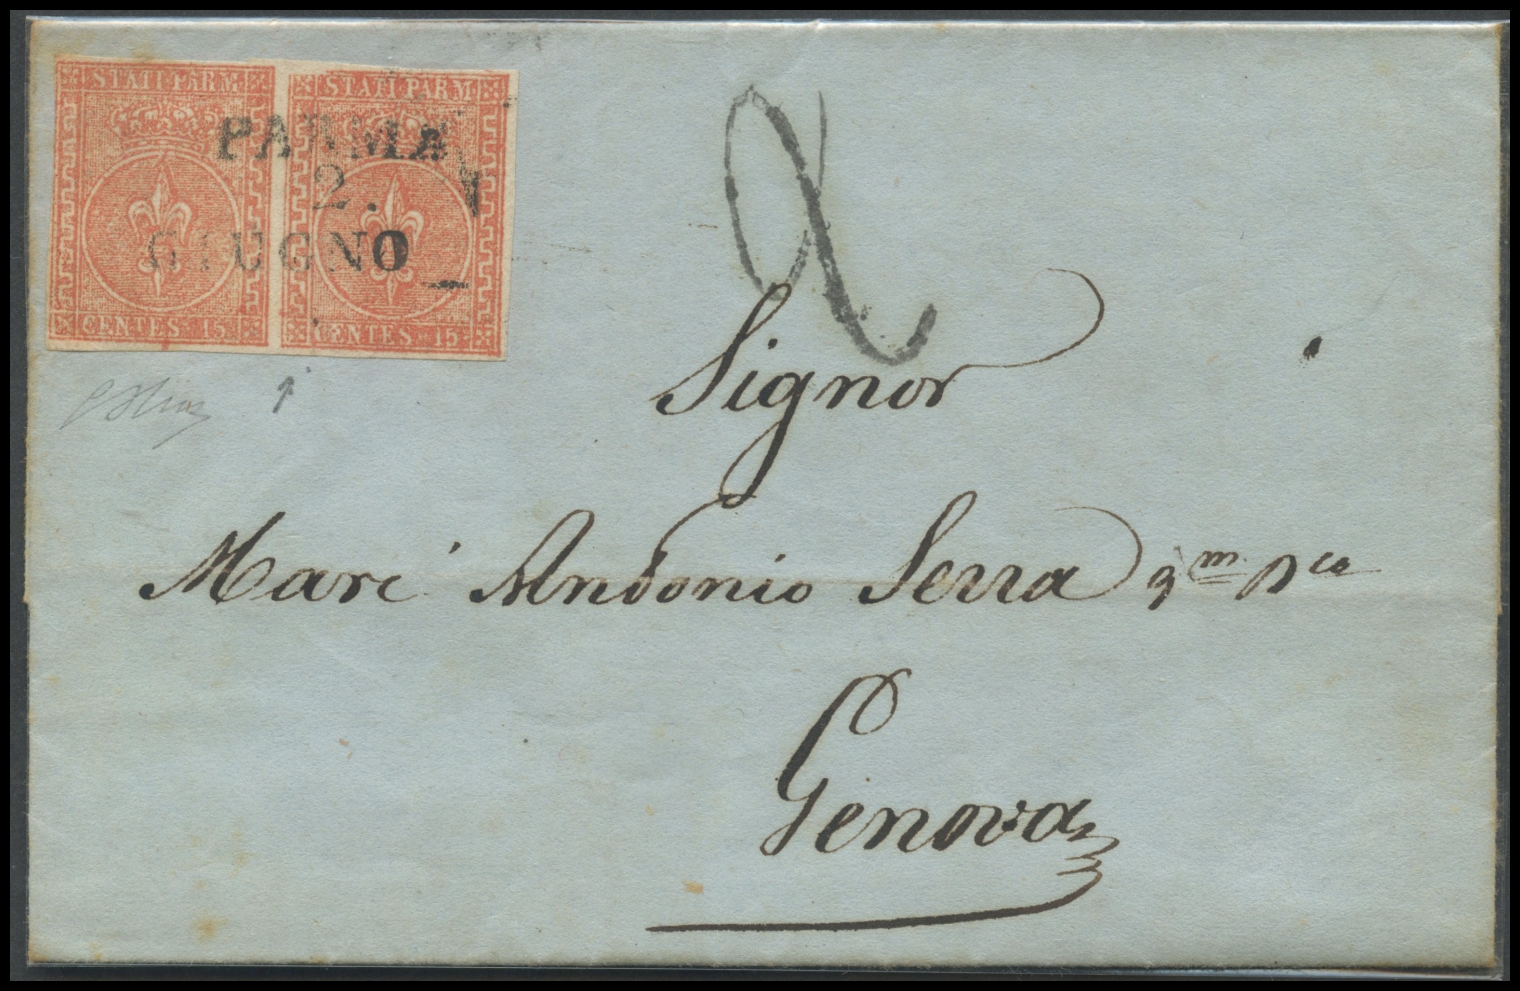 STATI PARM. STATI PARM.
PARMA
2.
GIUGNO
CENTES. 15. CENTES. 15.
2
Signor
Marc Andonio Serra q.m
Genova